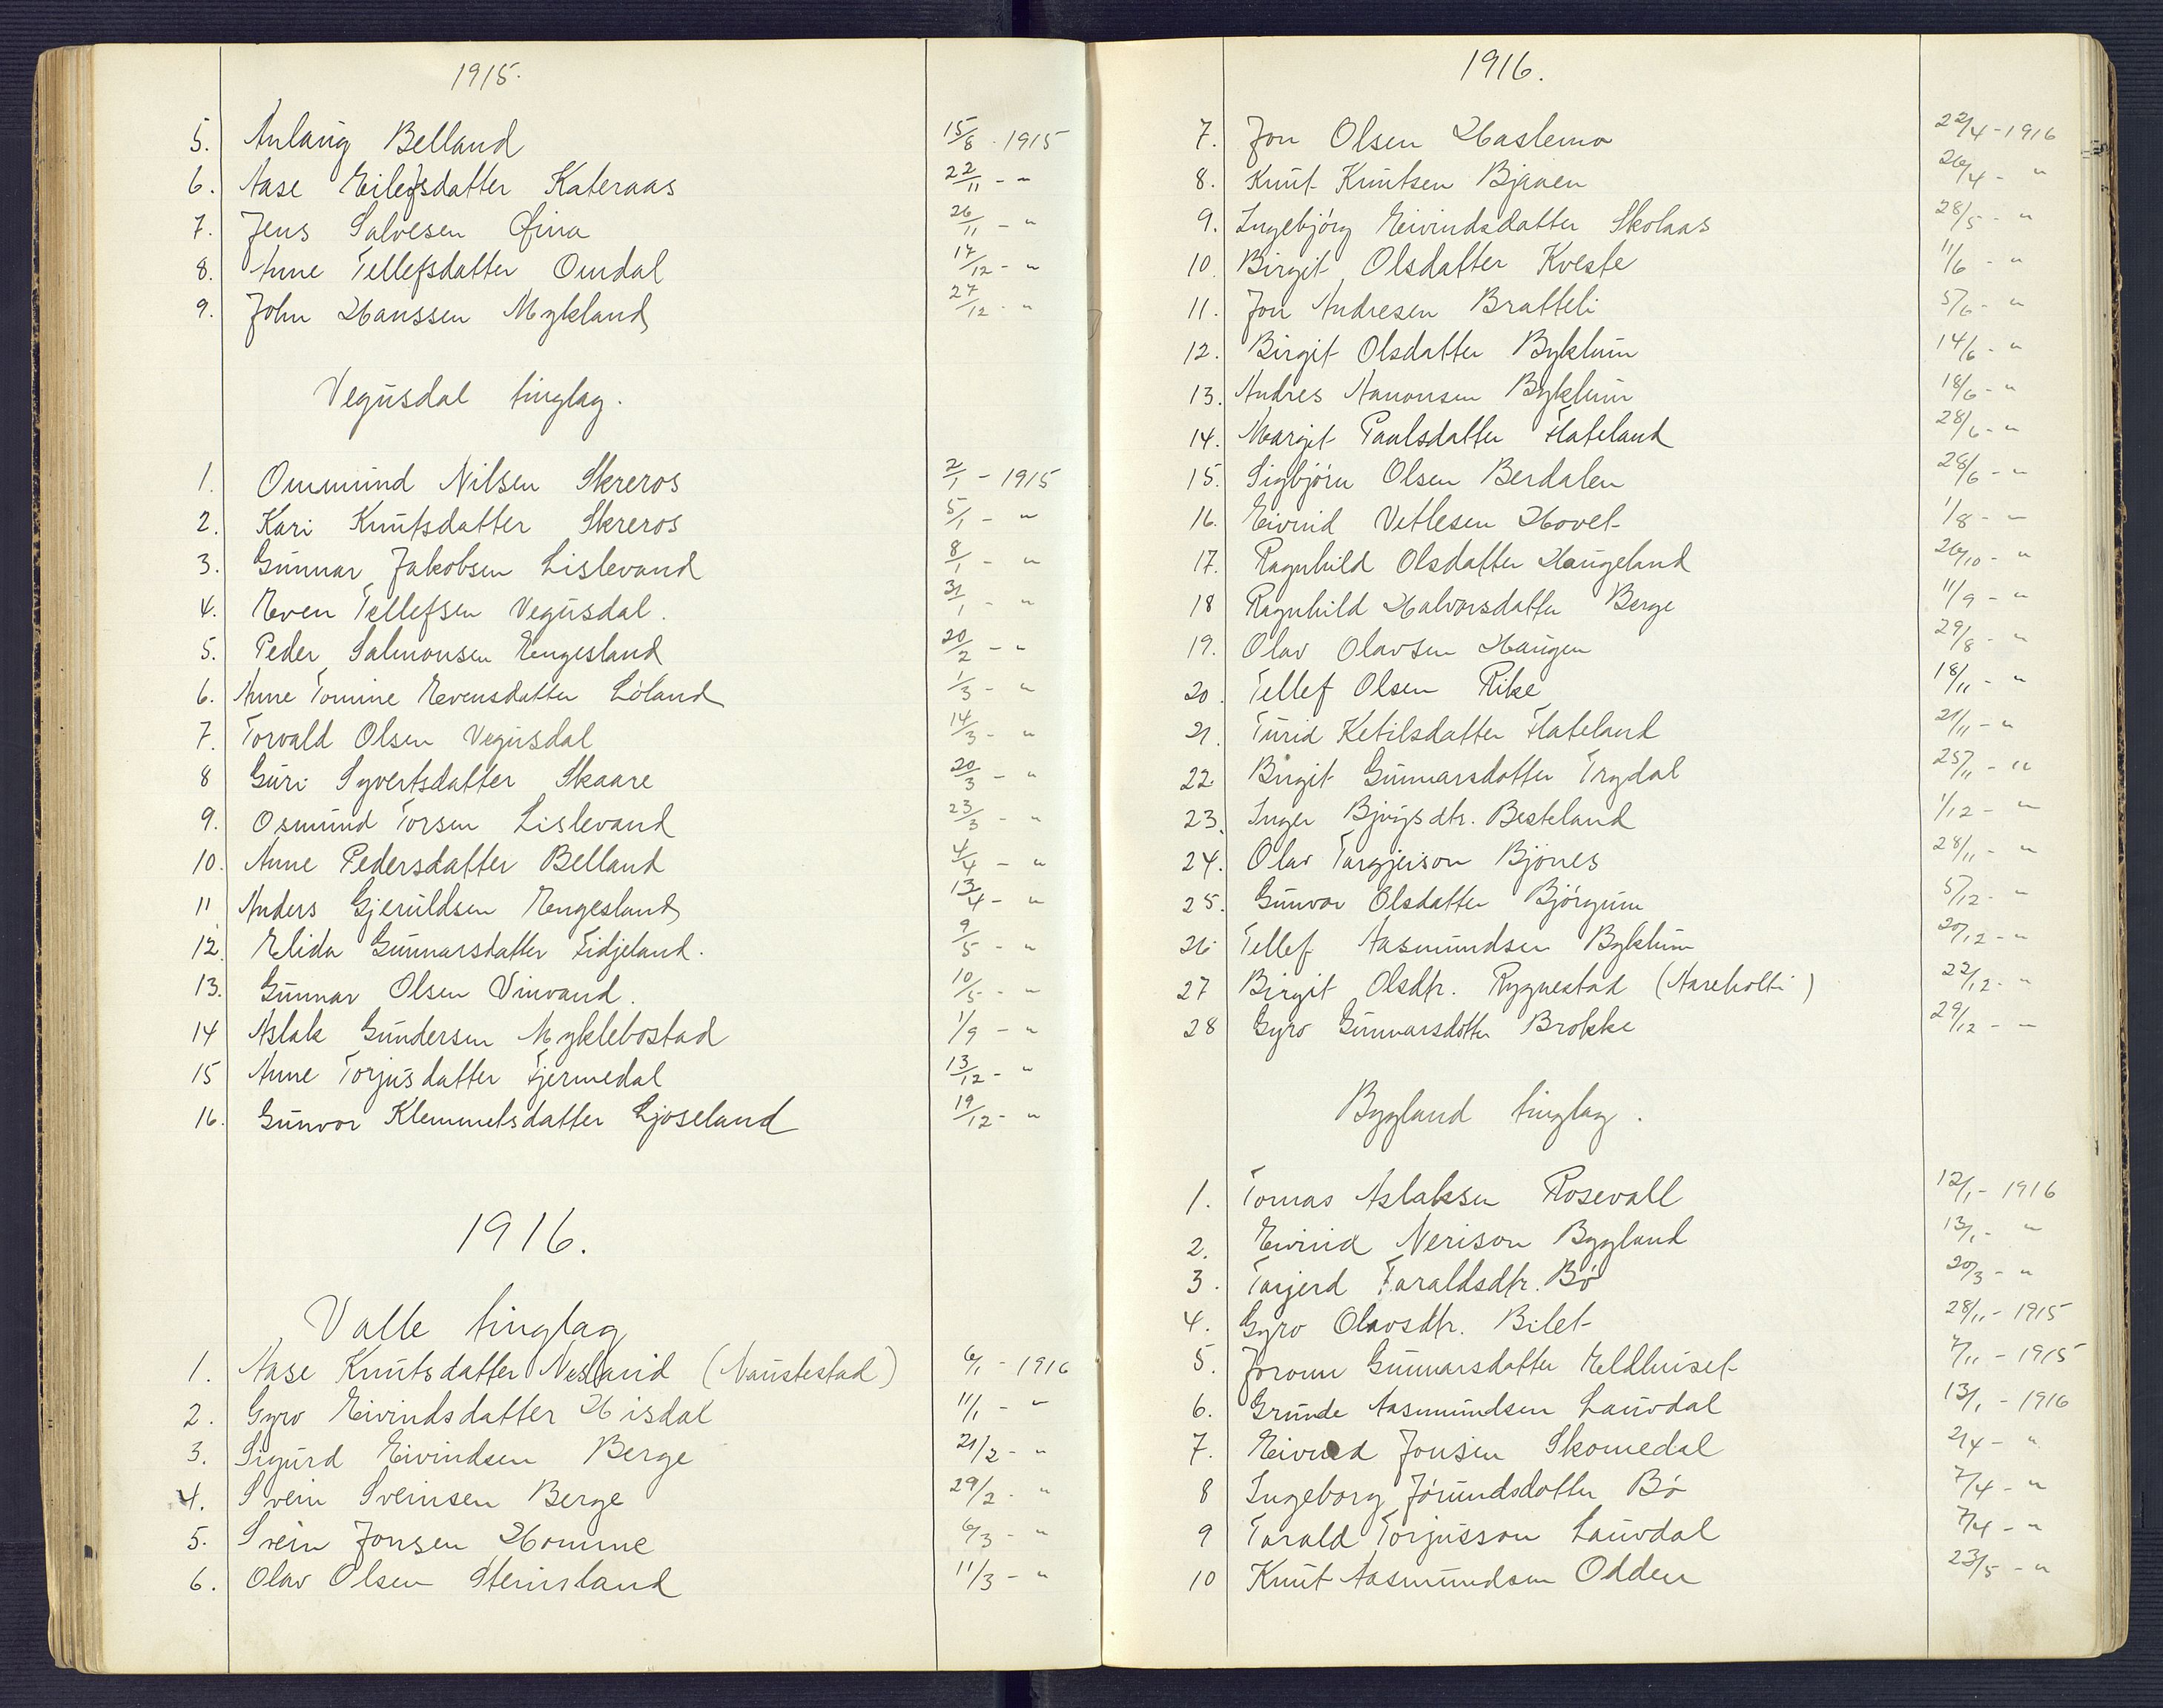 1915.
5. Anlaug Belland 15/8 - 1915
6. Aase Eilefsdatter Kateraas 22/11 - "
7. Jens Salvesen Øina 26/11 - "
8. Anne Tellefsdatter Omdal 17/12 - "
9. John Hanssen Mykland 27/12 - "
Vegusdal tinglag.
1. Ommund Nilsen Skreros 2/1 - 1915
2. Kari Knutsdatter Skreros 5/1 - "
3. Gunnar Jakobsen Lislevand 8/1 - "
4. Even Tellefsen Vegusdal. 31/1 - "
5. Peder Salmonsen Engesland 20/2 - "
6. Anne Tomine Evensdatter Løland 1/3 - "
7. Torvald Olsen Vegusdal 14/3 - "
8 Guri Syvertsdatter Skaare 20/3 - "
9. Osmund Torsen Lislevand 23/3 - "
10. Anne Pedersdatter Belland 4/4 - "
11 Anders Gjeruldsen Engesland 13/4 - "
12. Elida Gunnarsdatter Fidjeland. 9/5 - "
13. Gunnar Olsen Vinvand. 10/5 - "
14 Aslak Gundersen Myklebostad 1/9 - "
15 Anne Torjusdatter Fjermedal 13/12 - "
16. Gunvor Klemmetsdatter Ljoseland 19/12 - "
1916.
Valle tinglag
1. Aase Knutsdatter Nesland (Naustestad) 6/1 - 1916
2. Gyro Eivindsdatter Hisdal 11/1 - "
3. Sigurd Eivindsen Berge 21/2 - "
4. Svein Sveinsen Berge 29/2 - "
5. Svein Jonsen Homme 6/3 - "
6. Olav Olsen Steinsland 11/3 - "
1916.
7. Jon Olsen Haslemo 22/4 - 1916
8. Knut Knutsen Bjaaen 26/4 - "
9. Ingebjørg Eivindsdatter Skolaas 28/5 - "
10. Birgit Olsdatter Kveste 11/6 - "
11. Jon Andresen Bratteli 5/6 - "
12. Birgit Olsdatter Byklum 14/6 - "
13. Andres Aanonsen Byklum 18/6 - "
14. Margit Paalsdatter Flateland 28/6 - "
15. Sigbjørn Olsen Berdalen 28/6 - "
16. Eivind Vetlesen Hovet 1/8 - "
17. Ragnhild Olsdatter Haugeland 26/10 - "
18 Ragnhild Halvorsdatter Berge 11/9 - "
19. Olav Olavsen Haugen 29/8 - "
20. Tellef Olsen Rike 18/11 - "
21. Turid Ketilsdatter Flateland 21/11 - "
22. Birgit Gunnarsdotter Trydal 25/11 - "
23. Inger Bjugsdtr. Besteland 1/12 - "
24. Olav Targjeison Bjones 28/11 - "
25. Gunvor Olsdatter Bjørgum 5/12 - "
26 Tellef Aasmundsen Byklum 20/12 - "
27 Birgit Olsdtr. Rygnestad (Aareholti) 22/12 - "
28 Gyro Gunnarsdotter Brokke 29/12 - "
Bygland tinglag.
1. Tomas Aslaksen Rosevall 12/1 - 1916
2. Eivind Nerison Bygland 13/1 - "
3. Torjerd Taraldsdtr. Bø 20/3 - "
4. Gyro Olavsdtr. Bilet 28/11 - 1915
5. Joronn Gunnarsdatter Eldhuset 7/11 - 1915
6. Grunde Aasmundsen Lauvdal 13/1 - 1916
7. Eivind Jonsen Skomedal 2/4 - "
8 Ingeborg Jørundsdotter Bø 7/4 - "
9 Tarald Torjusson Lauvdal 7/4 - "
10 Knut Aasmundsen Odden 23/5 - "